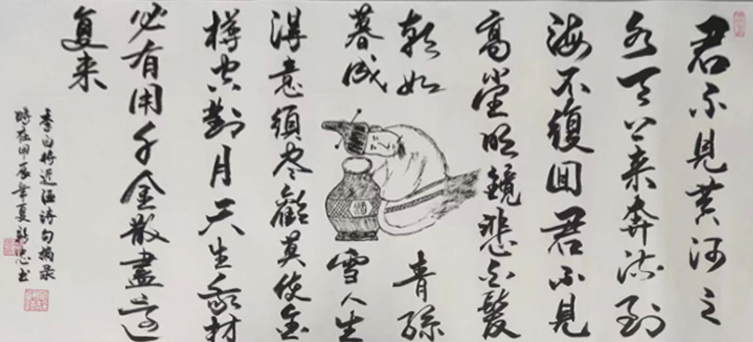 君不見黄河之
水天上来奔流到
海不復回君不見
高堂明鏡悲白髮
朝如青絲
暮成雪人生
得意須尽歡莫使金
樽空對月天生我材
必有用千金散盡還
复来
李白将近酒詩句摘录
時在甲辰年夏書
酒